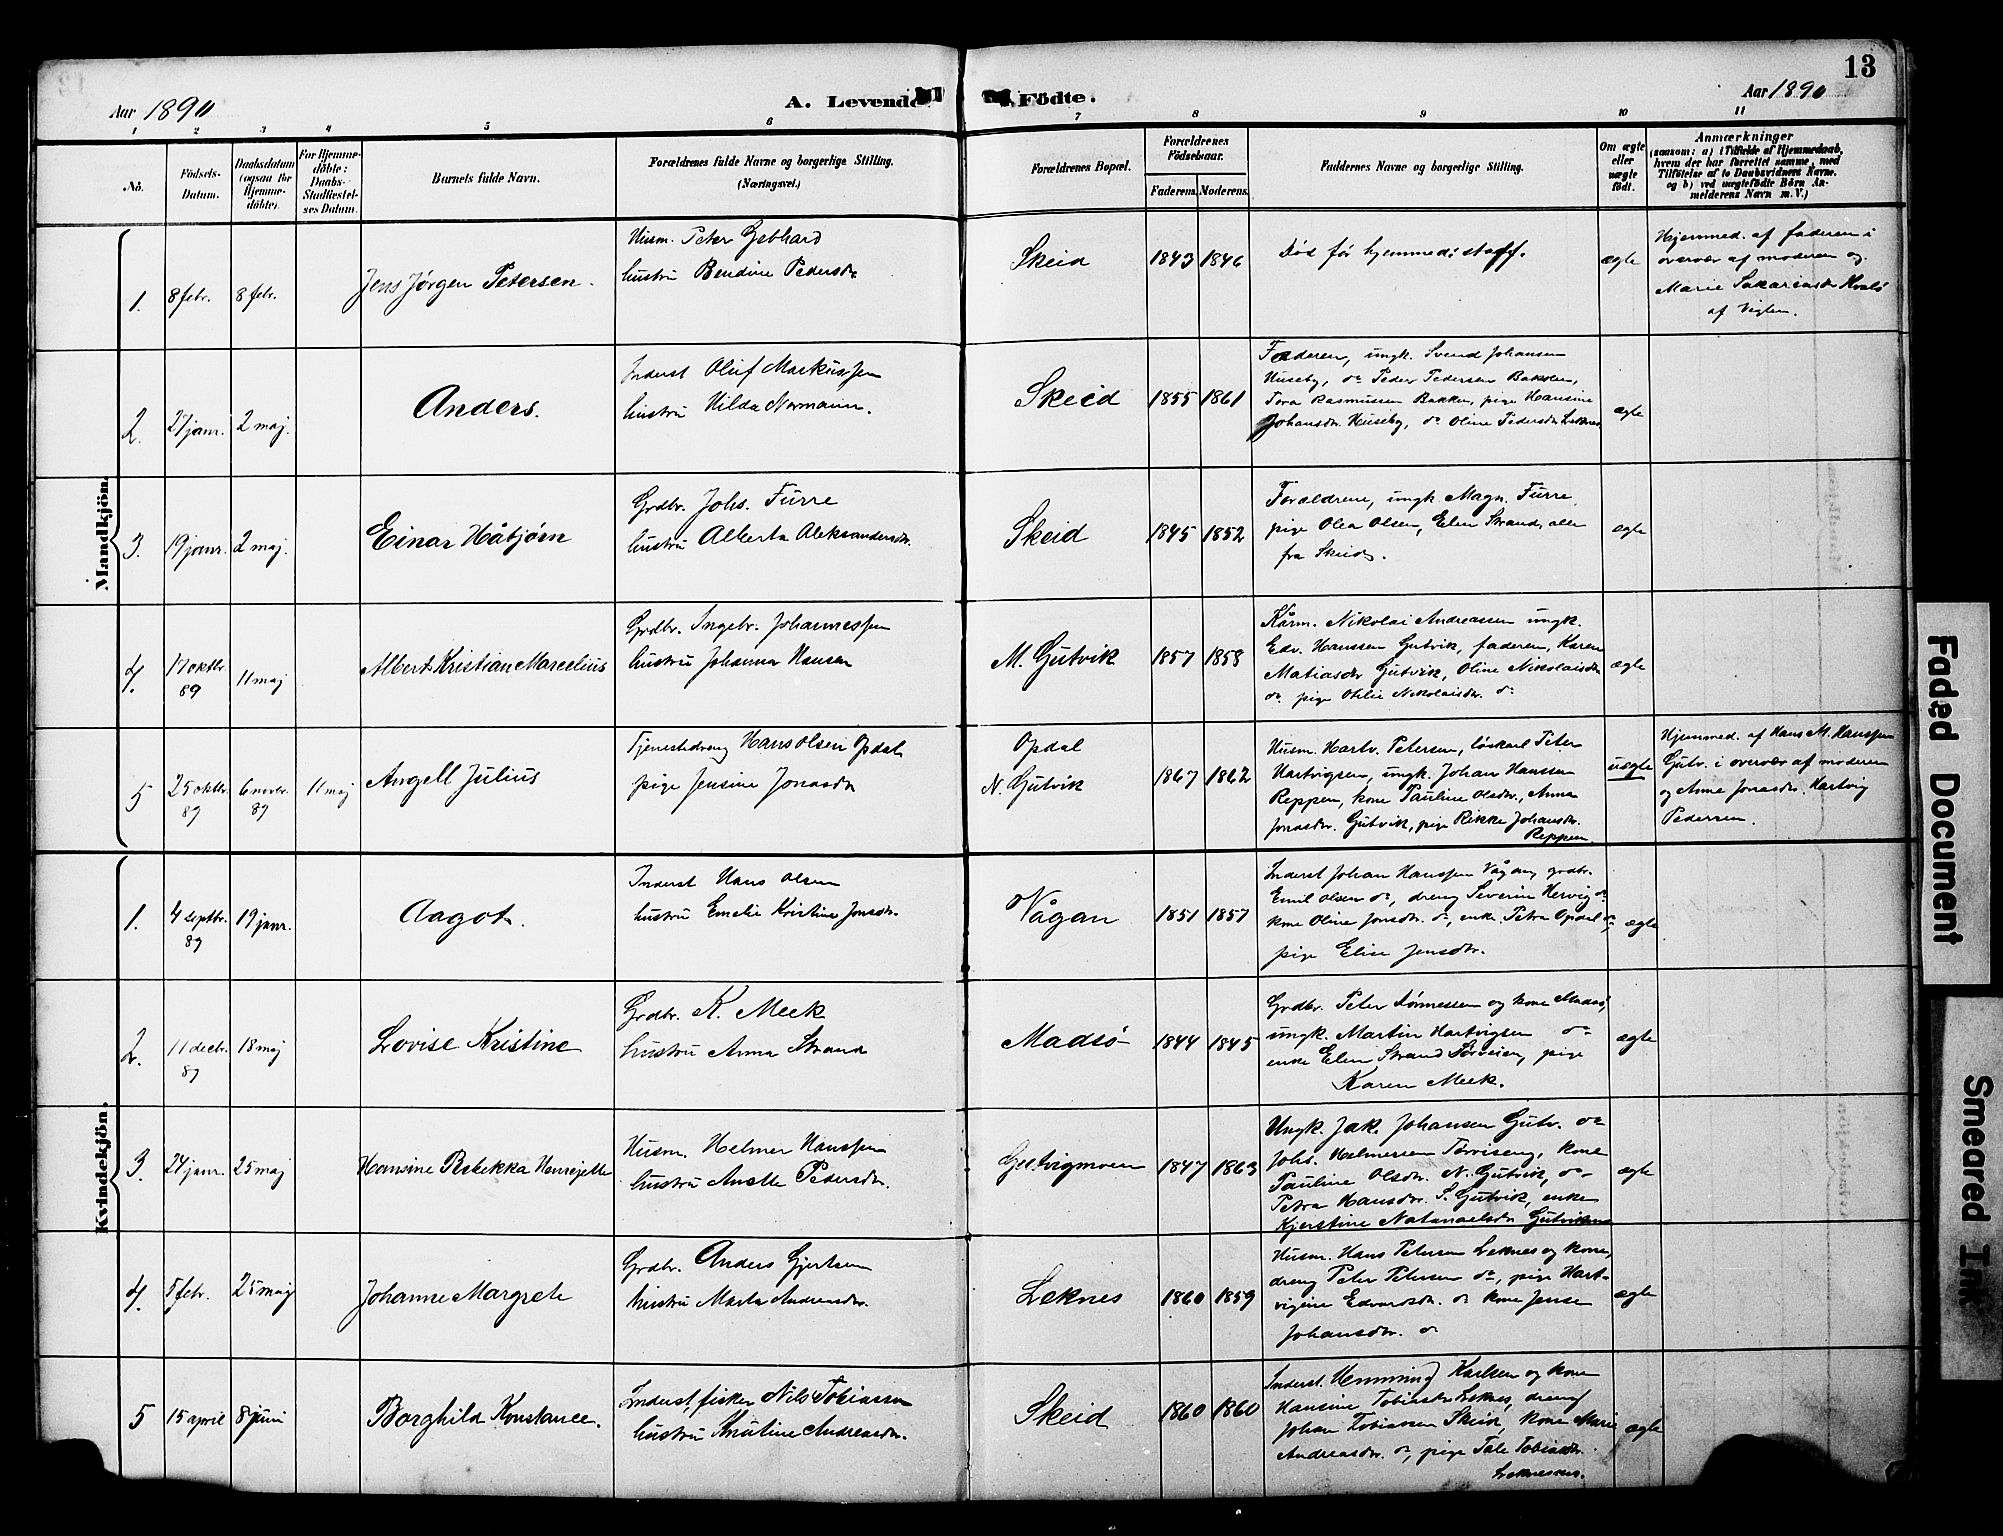 13
Aar 1890
A. Levende
Födte.
Aar 1890
1 2 3 4 5 6 7 8 9 10 11
No.
Födsels-Datum.
Daabsdatum (ogsaa for Hjemme-döbte).
For Hjemme-döbte: Daabs-Stadfæstel-ses Datum.
Barnets fulde Navn.
Forældrenes fulde Navne og borgerlige Stilling.
(Næringsvei.)
Forældrenes Bopæl.
Forældrenes Födselsaar.
Faderens. Moderens.
Faddernes Navne og borgerlige Stilling.
Om ægte eller uægte födt.
Anmærkninger
(saasom: a) i Tilfælde af Hjemmedaab,
hvem der har forrettet samme, med
Tilföielse af to Daabsvidners Navne.
og b) ved uægtefödte Börn An-
melderens Navn m.V.)
Mandkjön.
1. 8 febr. 8 febr. Jens Jørgen Petersen.
Husm. Peter Gebhard
hustru Bendine Pedersdr
Skeid 1843 1846
Død før hjemmed: stadf.
ægte
Hjemmed. af faderen i
overvær af moderen og
Marie Sakariasdr Hvalø
af Vigten.
2. 27 janr. 2 maj. Anders.
Inderst Oluf Markussen
hustru Hilda Normann.
Skeid 1855 1861
Faderen, ungk. Svend Johansen
Huseby, do Peder Pedersen Bakken,
Tora Rasmussen Bakken, pige Hansine
Johansdr. Huseby, do Oline Pedersdr Leknes
ægte
3. 19 janr. 2 maj. Einar Håbjørn
Grdbr. Johs. Furre
hustru Alberta Aleksandersdr.
Skeid 1845 1852
Forældrene, ungk. Magn. Furre,
pige Olea Olsen, Elen Strand, alle
fra Skeid.
ægte
4. 17 oktbr. 89 11 maj Albert Kristian Marcelius
Grdbr. Ingebr. Johannessen
hustru Johanna Hansen
M. Gutvik 1857 1858
Kårm. Nikolai Andreassen ungk.
Edv. Hanssen Gutvik, faderen, Karen
Matiasdr Gutvik, Oline Nikolaisdr
do pige Otilie Nikolaisdr. do
ægte
5 25 oktbr. 89 6 novbr. 89 11 maj Angell Julius
Tjenestedreng Hans Olsen Opdal
pige Jensine Jonasdr
Opdal
N. Gutvik 1867 1862
Husm. Hartv. Petersen, løskarl Peter
Hartvigsen, ungk. Johan Hanssen
Reppen, kone Pauline Olsdr., Anna
Jonasdr. Gutvik, pige Rikke Johansdr.
Reppen.
uægte
Hjemmed. af Hans M. Hanssen
Gutv. i overvær af moderen
og Anne Jonasdr. Hartvig
Pedersen.
Kvindekjön.
1. 4 septbr. 89 19 janr. Aagot.
Inderst Hans Olsen
hustru Emelie Kristine Jonsdr.
Vågan 1851 1857
Inderst Johan Hanssen Vågan, grdbr.
Emil Olsen do, dreng Severin Hervig do
kone Oline Jonsdr. do, enke Petra Opdal do,
pige Elise Jensdr.
ægte
2. 11 decbr. 89 18 maj Lovise Kristine
Grdbr. K. Meek
hustru Anna Strand
Madsø 1844 1845
Grdbr. Peter Tønnessen og kone Madsø,
ungk. Martin Hartvigsen do
enke Elen Strand Sørveien, pige
Karen Meek.
ægte
3. 24 janr. 25 maj Hansine Rebekka Henrijette
Husm. Helmer Hanssen
hustru Anette Pedersdr.
Gutvigmoen 1847 1863
Ungk. Jak. Johansen Gutv. do
Johs. Helmersen Torviseng, kone
Pauline Olsdr. N. Gutvik, do
Petra Hansdr. S. Gutvik, enke
Kjerstine Natanaelsdr Gutvikmo
ægte
4. 5 febr. 25 maj Johanne Margrete
Grdbr. Anders Gjertsen
hustru Marta Andreasdr.
Leknes 1860 1859
Husm. Hans Petersen Leknes og kone,
dreng Peter Petersen do, pige Hart-
vigine Edvardsdr. do kone Jense
Johansdr. do
ægte
5 15 april 8 juni Borghild Konstance.
Inderst fisker Nils Tobiassen
hustru Knutine Andreasdr.
Skeid 1860 1860
Inderst. Hemming Karlsen og kone
Hansine Tobiasdr Leknes, dreng
Johan Tobiassen Skeid, kone Marie
Andreasdr. do, pige Tale Tobiasdr.
Leknessen.
ægte
Faded Document
Smeared Ink